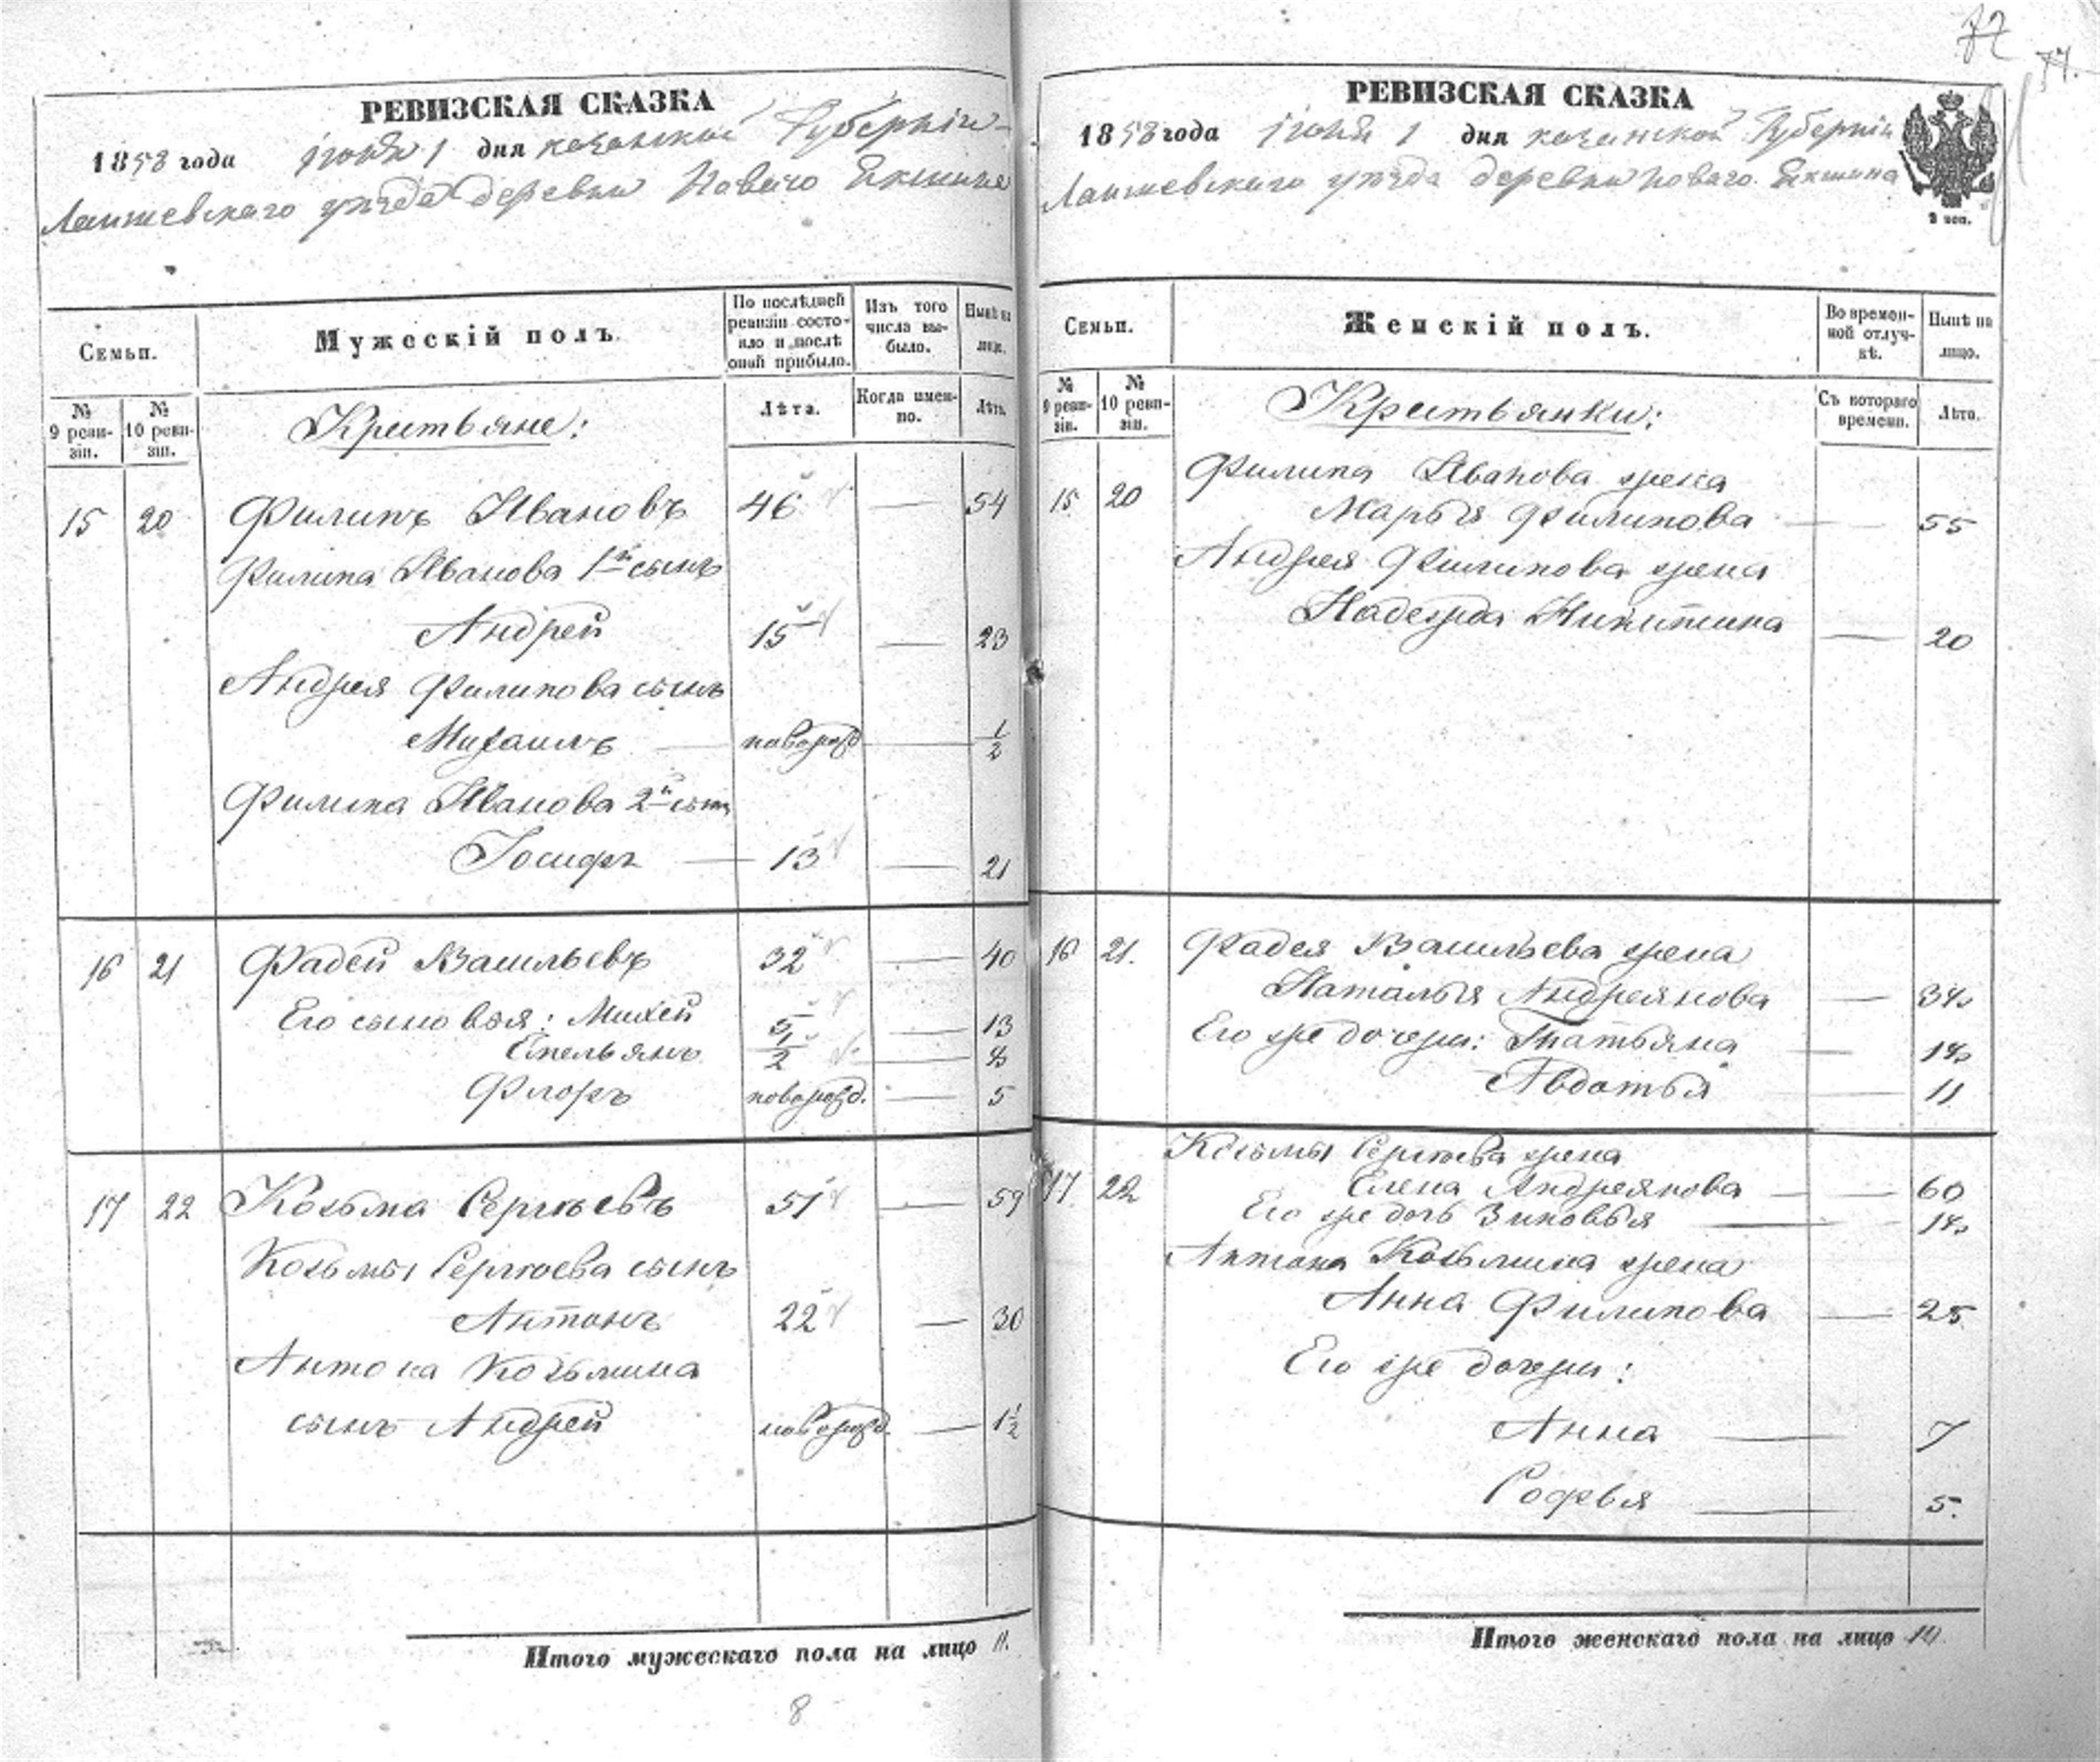 72
77.
РЕВИЗСКАЯ СКАЗКА
1858 года іюня 1 дня казанской Губерніи
Лаишевскаго уѣзда деревни Новаго Екшина
Семьи.
Мужескій полъ.
По послѣдней ревизіи состояло и послѣ оной прибыло.
Изъ того числа выбыло.
Нынѣ на лицо.
№ 9 ревизіи.
№ 10 ревизіи.
Крестьяне:
Лѣта.
Когда именно.
Лѣта.
15 20 Филипъ Ивановъ 46 — 54
Филипа Иванова 1й сынъ
Андрей 15 — 23
Андрея Филипова сынъ
Михаилъ — новорожд — 1/2
Филипа Иванова 2й сынъ
Іосифъ — 13 — 21
16 21 Фадей Васильевъ 32 — 40
Его сыновья: Михей 5 — 13
Емельянъ 1/2 — 8
Флоръ новорожд. — 5
17 22 Козьма Сергѣевъ 51 — 59
Козьмы Сергѣева сынъ
Антонъ 22 — 30
Антона Козьмина
сынъ Андрей новорожд. — 1 1/2
Итого мужескаго пола на лицо 11.
8
РЕВИЗСКАЯ СКАЗКА
1858 года іюня 1 дня казанской Губерніи
Лаишевскаго уѣзда деревни Новаго Екшина
Семьи.
Женскій полъ.
Во временной отлучкѣ.
Нынѣ на лицо.
№ 9 ревизіи.
№ 10 ревизіи.
Крестьянки:
Съ котораго времени.
Лѣта.
Филипа Иванова жена
15 20 Марья Филипова — 55
Андрея Филипова жена
Надежда Никитина — 20
16 21. Фадея Васильева жена
Наталья Андреянова — 38
Его же дочери: Татьяна — 18
Авдотья — 11
Козьмы Сергѣева жена
17 22 Елена Андреянова — 60
Его же дочь Зиновья — 18
Антона Козьмина жена
Анна Филипова — 25
Его же дочери:
Анна — 7
Софья — 5.
Итого женскаго пола на лицо 10.